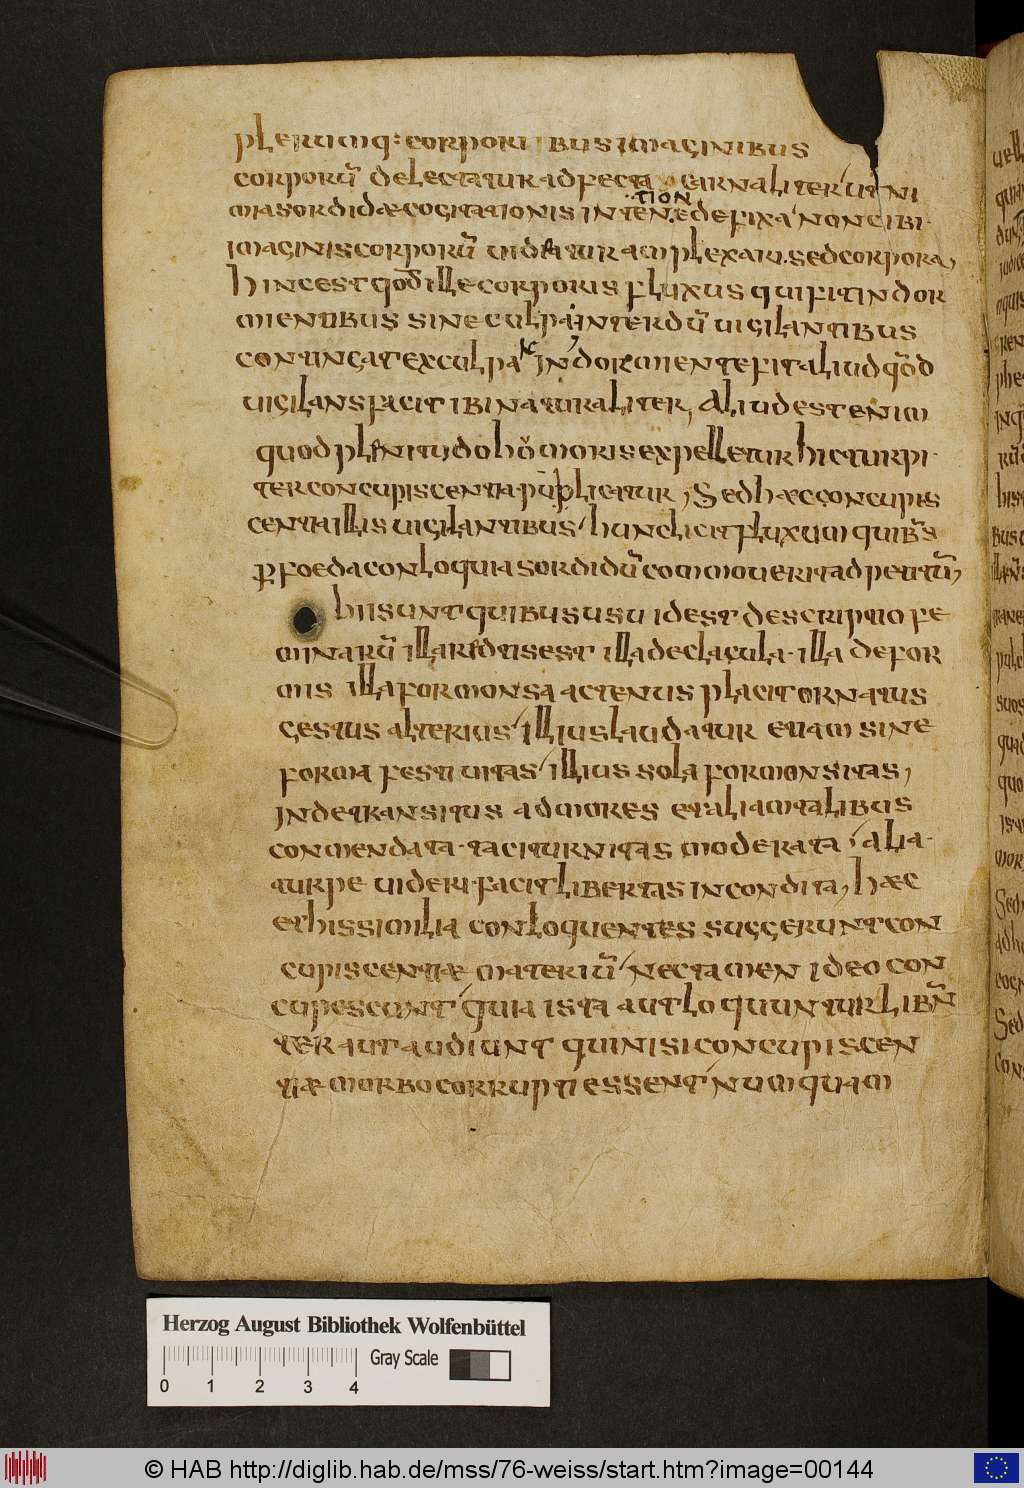 plerumq: corporibus imaginibus
corporū delectatur adfecta carnaliter ut ni
tion
mas ordidae cogitationis inten.e defixa non cibi
imaginis corporū uideatur amplexari. sed corpora,
hinc est qod ille corporis fluxus qui fit in dor
mientibus sine culpa, interdū uigilantibus
contingat ex culpa In dormiente fit aliud qōd
uigilans facit ibi naturaliter, Aliud est enim
quod plenitudo hōmoris expelletur hic turpi
ter concupiscentia puplicatur, Sed haec concupis
centia illis uigilantibus hunc licit fluxum quibus
foeda conloquia sordidū commouerit adpetitū,
hii sunt quibus usu id est descriptio fe
minarū illa ridtis est illa declagula. illa defor
mis illa formonsa ac tenuis placit ornatus
gestus alterius illius laudatur etiam sine
forma festiuitas illius sola formonsitas,
Inde transitus ad mores et alia mtalibus
conmendata. taciturnitas moderata, alia
turpe uideri facit libertas incondita, haec
et his similia conloquentes suggerunt con
cupiscentiae materiū nec tamen ideo con
cupescunt quia ista aut loquuntur libēn
ter aut audiunt qui nisi concupiscen
tiae morbo corrupti essent numquam
Herzog August Bibliothek Wolfenbüttel
0 1 2 3 4 Gray Scale
© HAB http://diglib.hab.de/mss/76-weiss/start.htm?image=00144